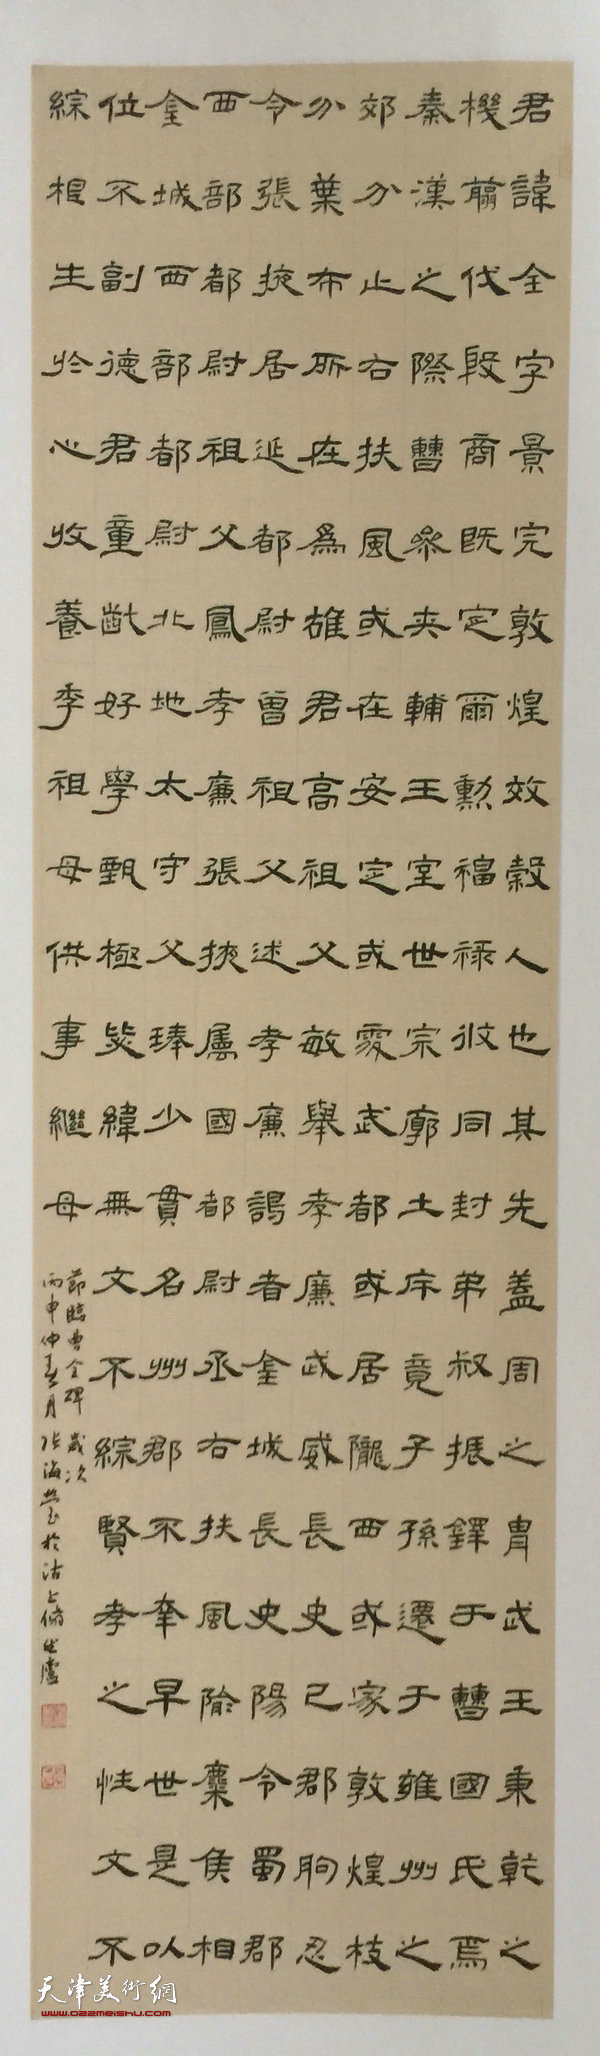 君諱全字景完敦煌效穀人也其先蓋周之胄武王秉乾之
機翦伐殷商既定爾勳福祿攸同封弟叔振鐸于曹國氏焉
秦漢之際曹參夾輔王室世宗廓土斥竟子孫遷于雍州之
郊分止右扶風或在安定或處武都或居隴西或家敦煌枝
分葉布所在為雄君高祖父敏舉孝廉武威長史巴郡朐忍
令張掖居延都尉曾祖父述孝廉謁者金城長史陽令蜀郡
西部都尉祖父鳳孝廉張掖屬國都尉丞右扶風隃麋侯相
金城西部都尉北地太守父琫少貫名州郡不幸早世是以
位不副德君童齔好學甄極毖緯無文不綜賢孝之性文不
綜相生於心收養季祖母供事繼母
節臨曹全碑歲次
丙申仲春月張海瑩於沽上
天津美術網
www.022meishu.com